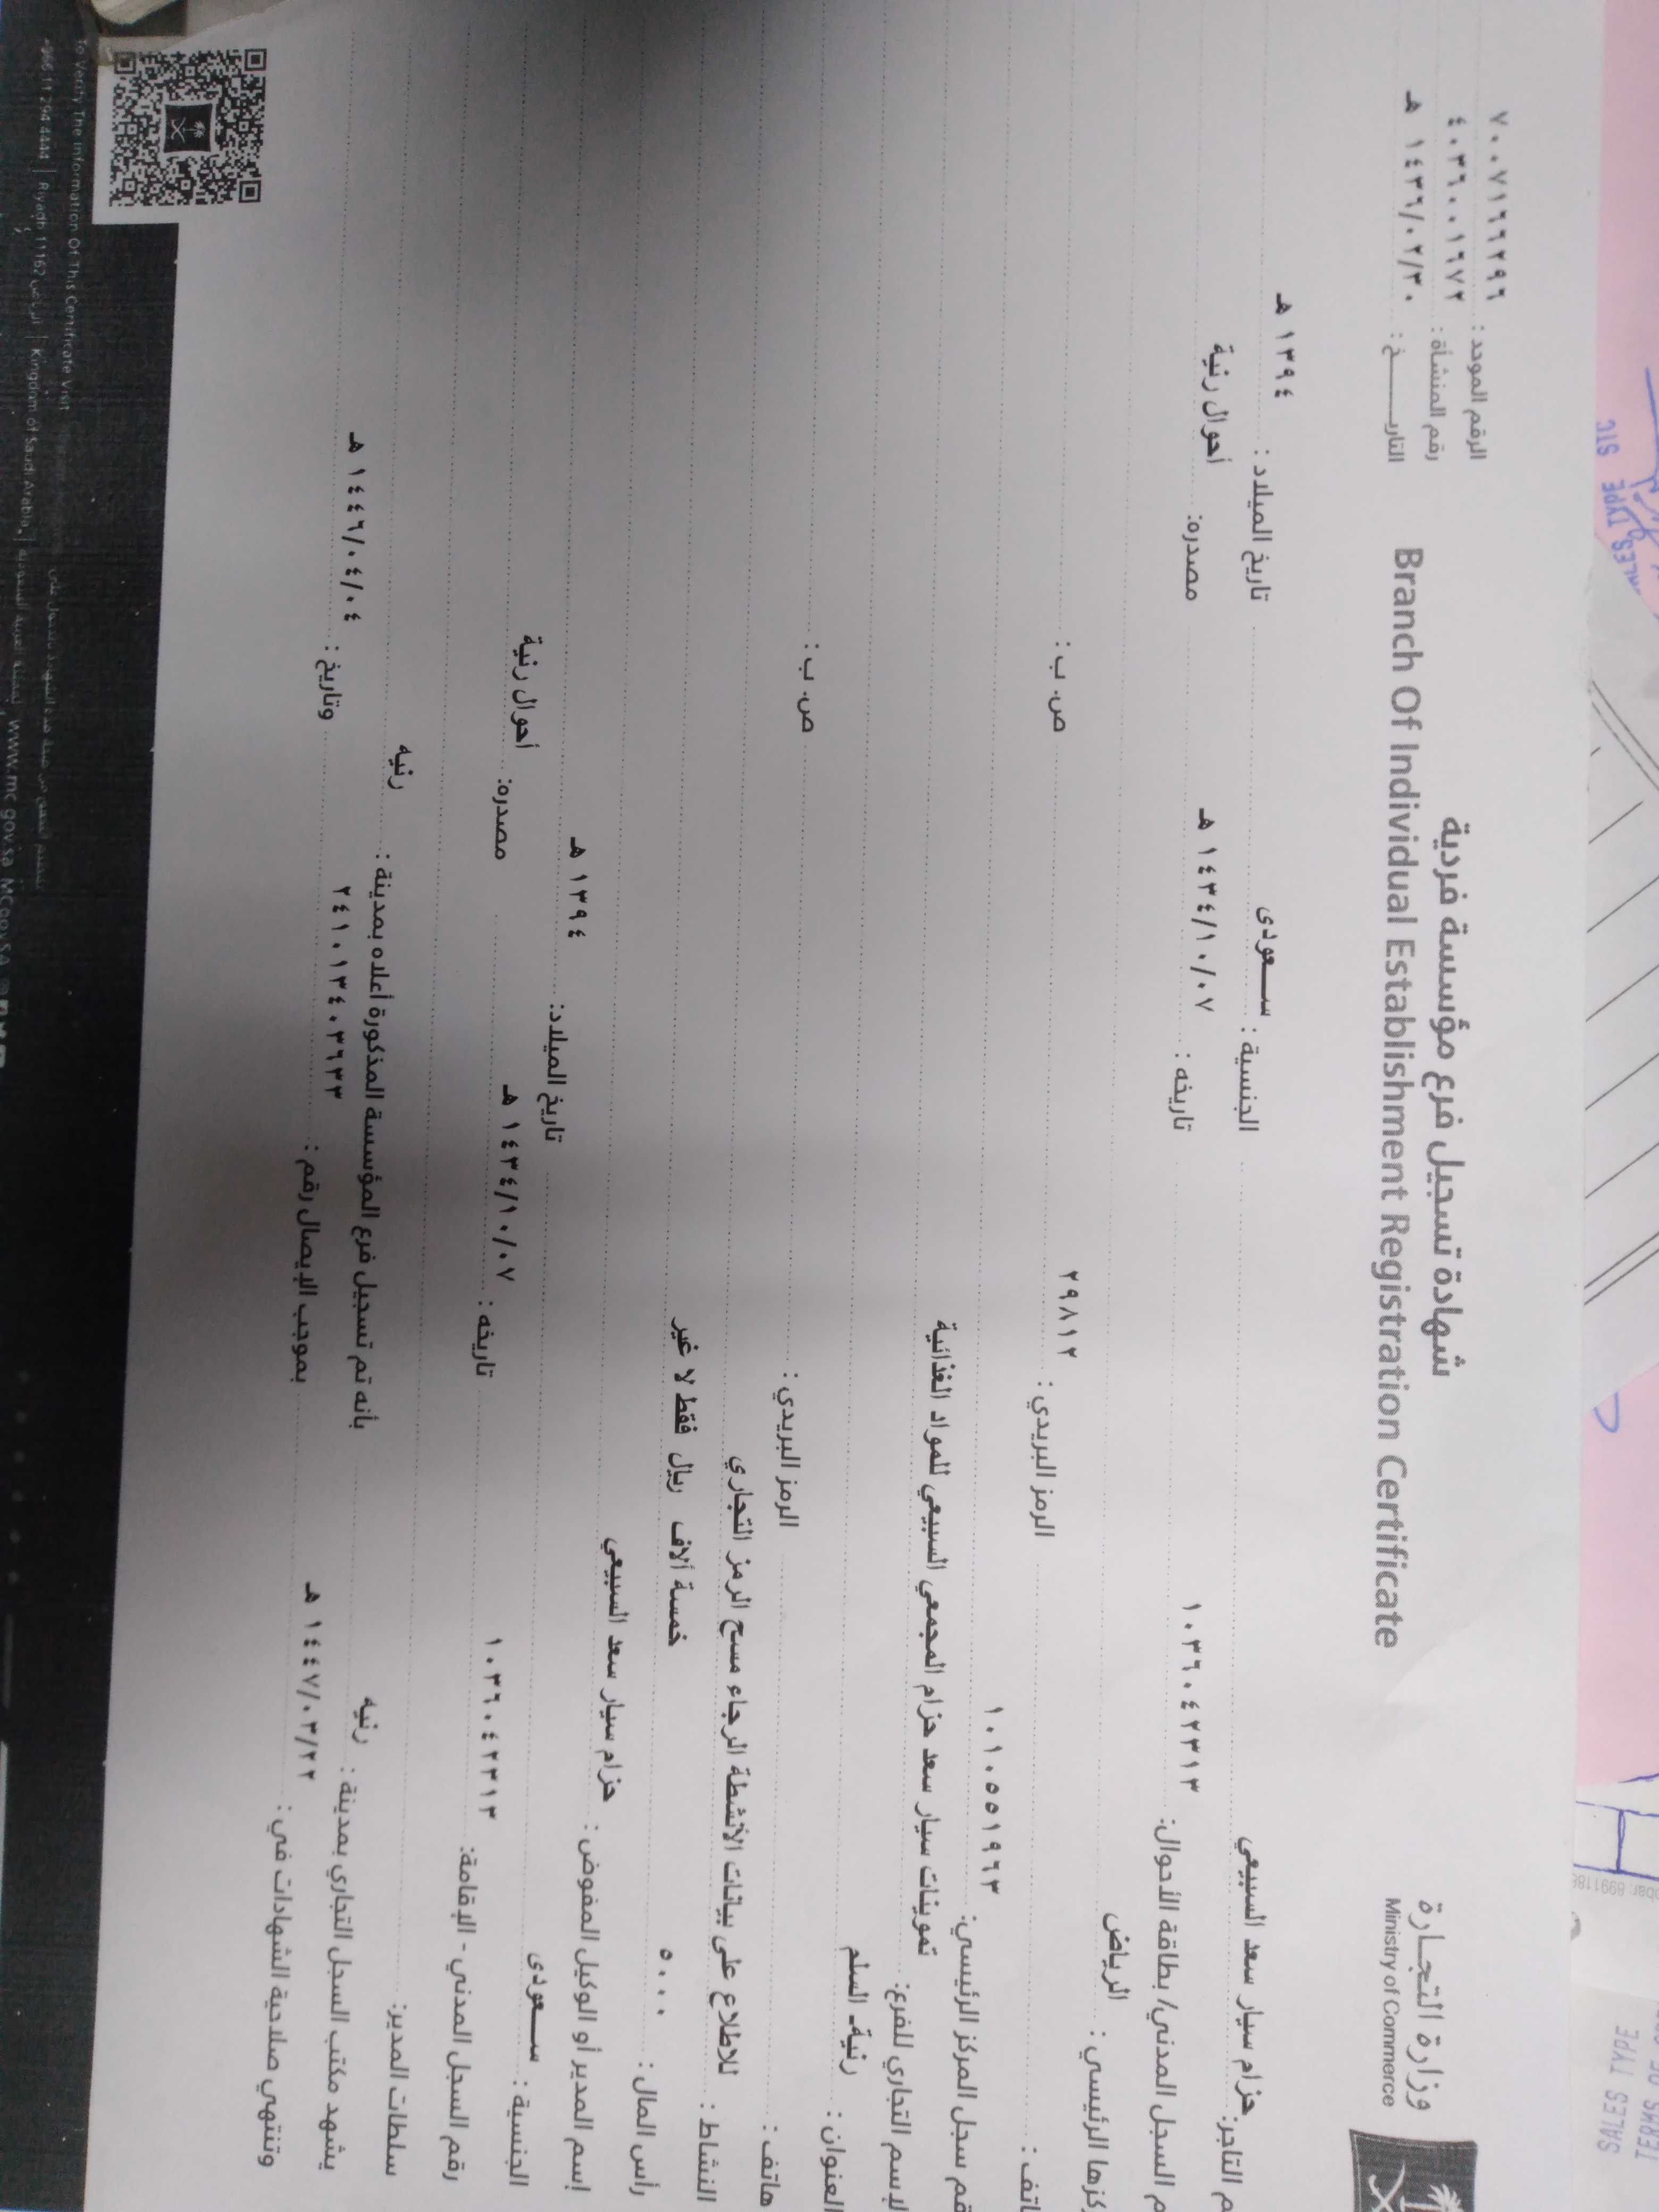 وزارة التجارة
Ministry of Commerce
شهادة تسجيل فرع مؤسسة فردية
Branch Of Individual Establishment Registration Certificate
الرقم الموحد : ٧٠٠٧١٦٦٢٩٦
رقم المنشأة : ٤٠٣٦٠٠١٩٧٢
التاريــــخ : ١٤٣٦/٠٢/٣٠ هـ
م التاجر: حزام سيار سعد السبيعي الجنسية : ســعودى تاريخ الميلاد : ١٣٩٤ هـ
م السجل المدني/ بطاقة الأحوال: ١٠٣٦٠٤٢٣١٣ تاريخه : ١٤٣٤/١٠/٠٧ هـ مصدره: أحوال رنية
ركزها الرئيسي : الرياض
اتف : الرمز البريدي : ٢٩٨١٢ ص. ب :
قم سجل المركز الرئيسي: ١٠١٠٥٥١٩٦٣
لإسم التجاري للفرع: تموينات سيار سعد حزام المجمعي السبيعي للمواد الغذائية
العنوان : رنية- السلم
هاتف : الرمز البريدي : ص. ب :
النشاط : للاطلاع على بيانات الأنشطة الرجاء مسح الرمز التجاري
رأس المال : ٥٠٠٠ خمسة آلاف ريال فقط لا غير
إسم المدير أو الوكيل المفوض : حزام سيار سعد السبيعي
الجنسية : ســعودى تاريخ الميلاد: ١٣٩٤ هـ
رقم السجل المدني - الإقامة: ١٠٣٦٠٤٢٣١٣ تاريخه : ١٤٣٤/١٠/٠٧ هـ مصدره: أحوال رنية
سلطات المدير:
يشهد مكتب السجل التجاري بمدينة : رنيه بأنه تم تسجيل فرع المؤسسة المذكورة أعلاه بمدينة : رنيه
وتنتهي صلاحية الشهادات في : ١٤٤٧/٠٣/٢٢ هـ بموجب الإيصال رقم : ٢٤١٠١٣٤٠٣٦٣٣ وتاريخ : ١٤٤٦/٠٤/٠٤ هـ
To Verify The Information Of This Certificate Visit
+966 11 294 4444 | Riyadh 11162 الرياض | Kingdom of Saudi Arabia | المملكة العربية السعودية
www.mc.gov.sa
SALES TYPE